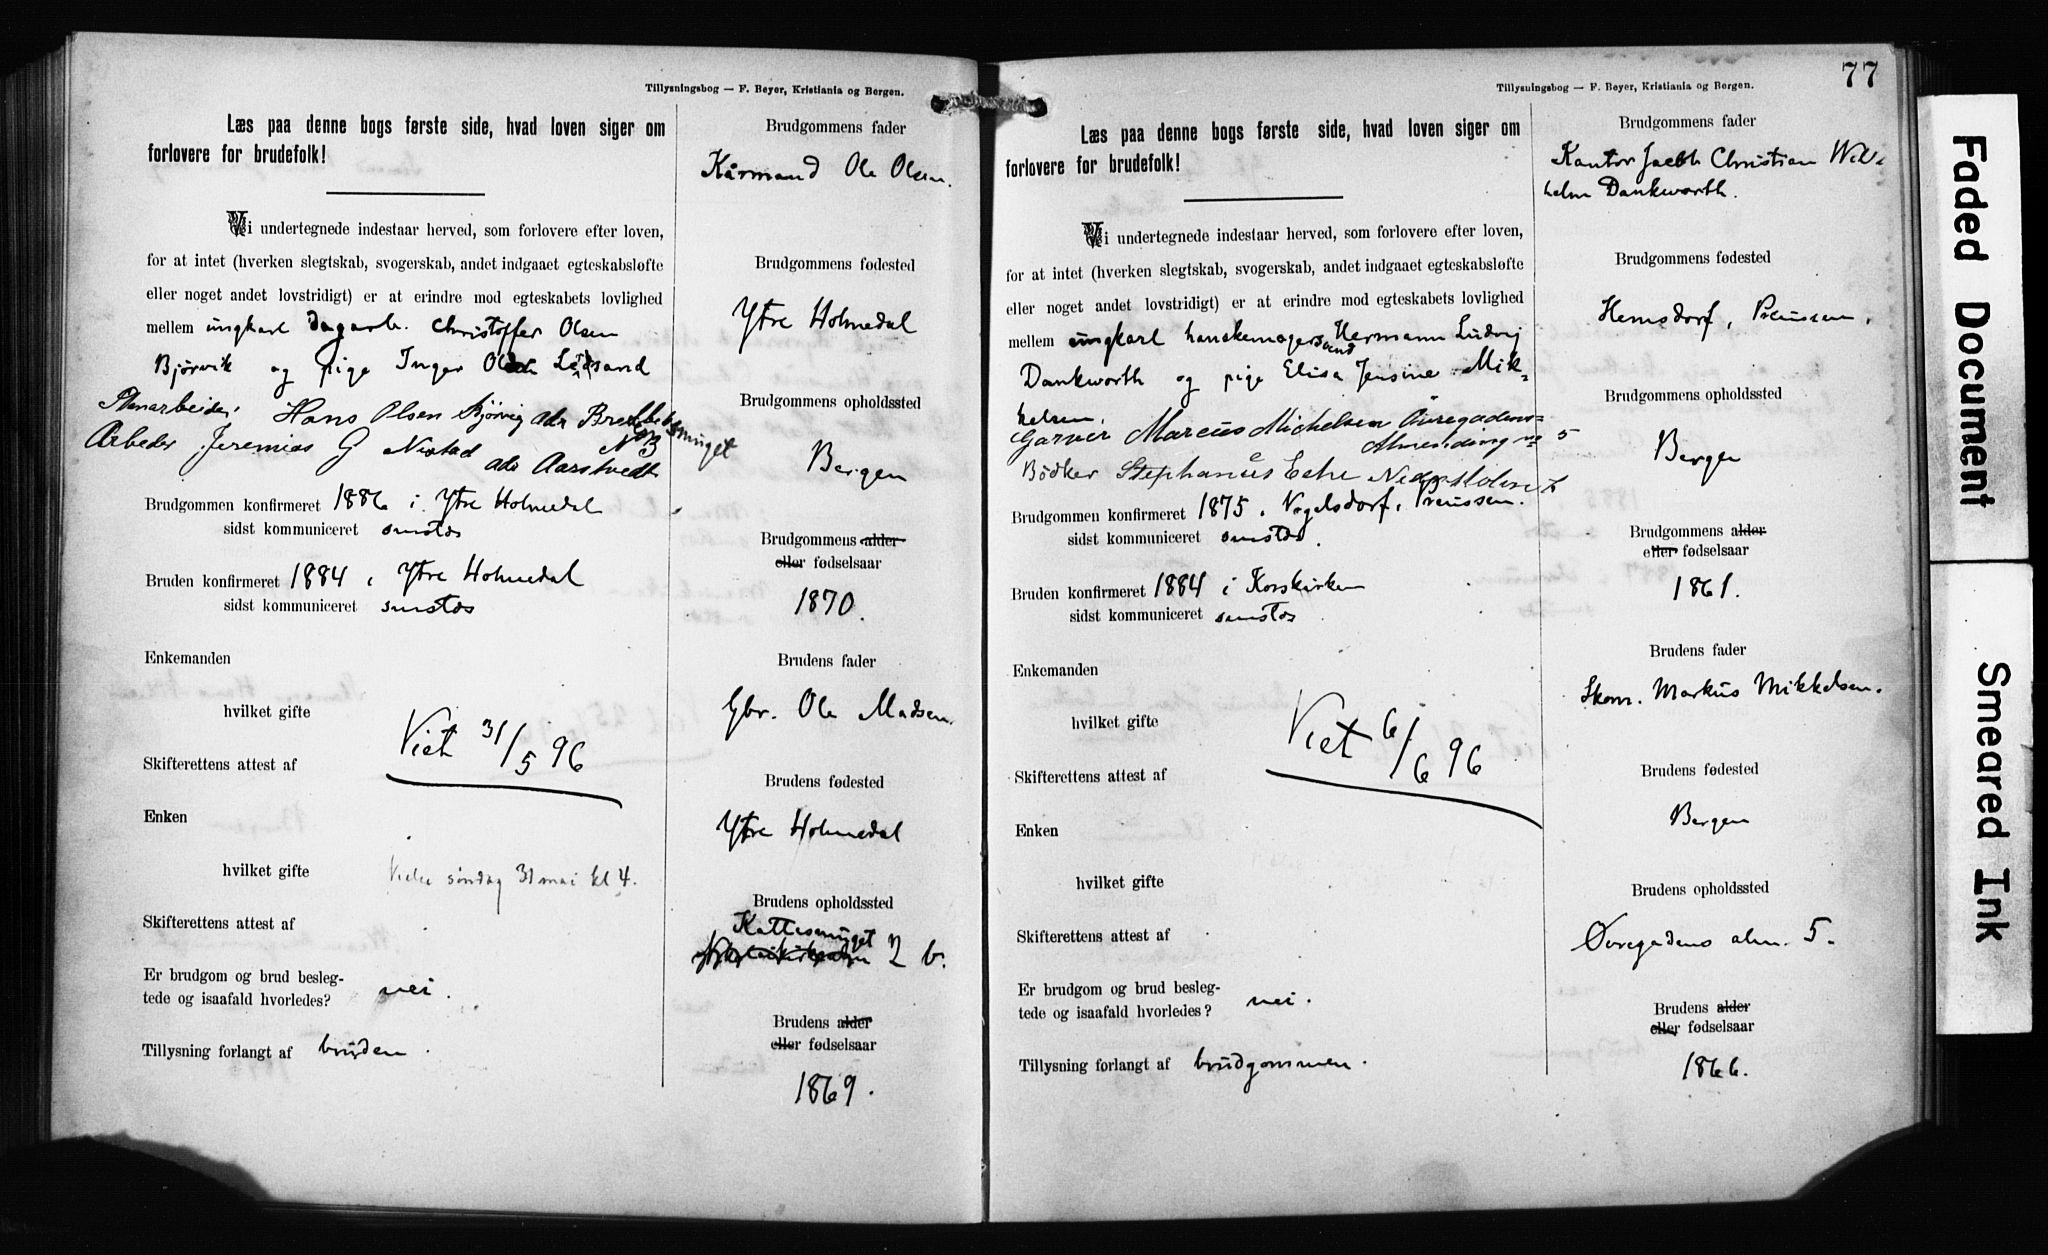 Tillysningsbog — F. Beyer, Kristiania og Bergen.
Læs paa denne bogs første side, hvad loven siger om
forlovere for brudefolk!
Vi undertegnede indestaar herved, som forlovere efter loven,
for at intet (hverken slegtskab, svogerskab, andet indgaaet egteskabsløfte
eller noget andet lovstridigt) er at erindre mod egteskabets lovlighed
mellem ungkarl dagarb. Christoffer Olsen
Bjørvik og pige Inger Ledsand
Hans Olsen Bjørvig adr
Arbeider Jeremias G Nestad adr Aarstvedt
Brudgommen konfirmeret 1886 i Ytre Holmedal
sidst kommuniceret smstds
Bruden konfirmeret 1884 i Ytre Holmedal
sidst kommuniceret smstds
Enkemanden
hvilket gifte
Viet 31/5 96
Skifterettens attest af
Enken
hvilket gifte
Vielse søndag 31 mai kl 4.
Skifterettens attest af
Er brudgom og brud besleg-
tede og isaafald hvorledes? nei.
Tillysning forlangt af bruden.
Brudgommens fader
Kårmand Ole Olsen.
Brudgommens fødested
Ytre Holmedal
Brudgommens opholdssted
Bergen
Brudgommens alder
eller fødselsaar
1870.
Brudens fader
Gbr. Ole Madsen.
Brudens fødested
Ytre Holmedal
Brudens opholdssted
Kattesmuget
2 b.
Brudens alder
eller fødselsaar
1869.
77
Tillysningsbog — F. Beyer, Kristiania og Bergen.
Læs paa denne bogs første side, hvad loven siger om
forlovere for brudefolk!
Vi undertegnede indestaar herved, som forlovere efter loven,
for at intet (hverken slegtskab, svogerskab, andet indgaaet egteskabsløfte
eller noget andet lovstridigt) er at erindre mod egteskabets lovlighed
mellem ungkarl hanskemagersvend Hermann Ludvig
Dankworth og pige Elisa Jensine Mik-
kelsen.
Garver Marcus Michelsen Øvregadens=
Almending no 5
Bødker Stephanus
Brudgommen konfirmeret 1875 i Vogelsdorf, Preussen.
sidst kommuniceret smstds.
Bruden konfirmeret 1884 i Korskirken
sidst kommuniceret smstds
Enkemanden
hvilket gifte
Viet 6/6 96
Skifterettens attest af
Enken
hvilket gifte
Skifterettens attest af
Er brudgom og brud besleg-
tede og isaafald hvorledes? nei.
Tillysning forlangt af brudgommen.
Brudgommens fader
Kantor Jacob Christian Wil-
helm Dankworth.
Brudgommens fødested
Hemsdorf, Preussen.
Brudgommens opholdssted
Bergen
Brudgommens alder
eller fødselsaar
1861.
Brudens fader
Skom. Markus Mikkelsen.
Brudens fødested
Bergen
Brudens opholdssted
Øvregadens alm. 5.
Brudens alder
eller fødselsaar
1866.
Faded Document
Smeared Ink